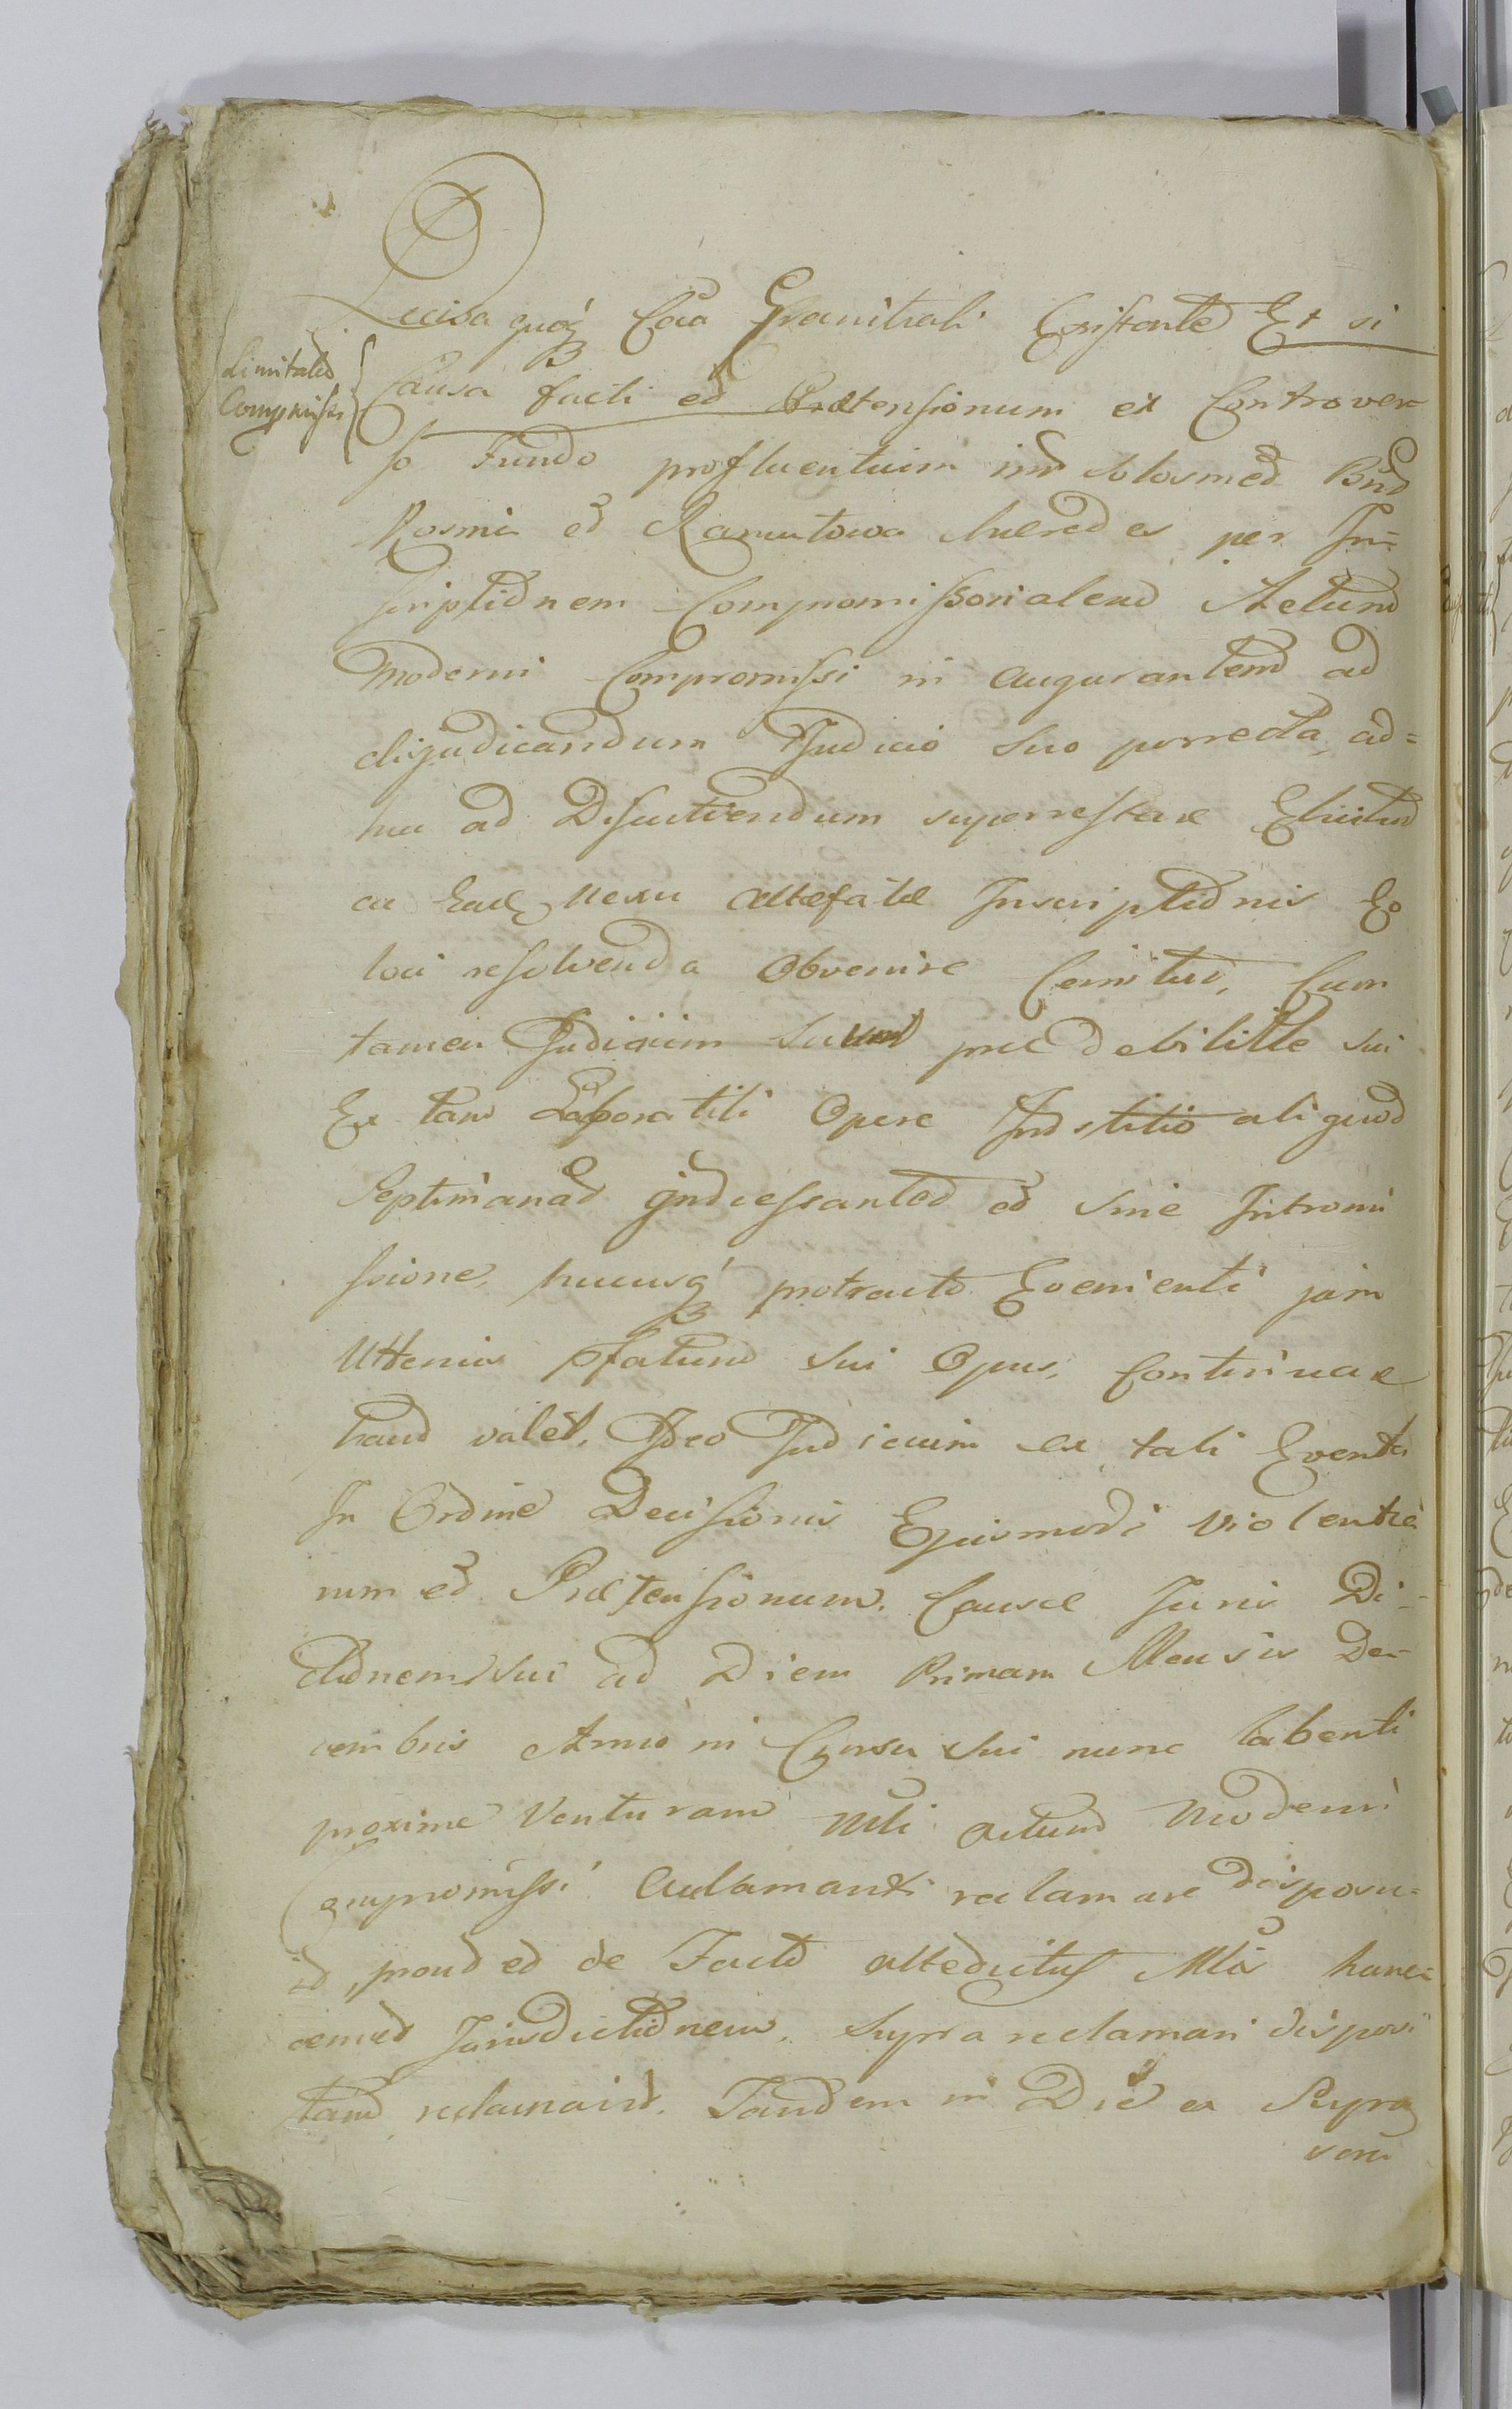 Decisa quoq Caa Granitiali Existente Et si
Limitatio
Compromissi
Causa facti et Prætensionum ex Controver=
so Fundo profluentium inr solosmet Bnd
Rosmi et Ramutowa hæredes per In=
scriptionem Compromissorialem Actum
Moderni Compromissi in augurantem ad
dijudicandum Judicio suo porrecta, ad=
huc ad Discutiendum superrestare
ex nexu attefatæ Inscriptionis Eo
loci resolvenda Obvenire Cernitur, Cum
tamen Judicium suum præ debilitte sui
Ex tam Laboratili Opere Institio aliquod
Septimanas indiessantes et sine Intromi
ssione, hucusq protracto Evenienti jam
Ulterius pfatum sui Opus, Continuare
haud valet, Ideo Judicium ex tali Eventu
In Ordine Decisionis Ejusmodi violentia
rum et Prætensionum Causæ Juris Di=
ctionem sui ad Diem Primam Mensis De=
cembris Anno in Cursu sui nunc labenti
proxime Venturam Mli actum Moderni
Compromissi acclamanti reclamare disposu=
it, prout et de Facto attedictus Mla hance=
cemet Jurisdictionem, supra reclamari disposi
tam reclamavit. Tandem in Die ea Supra